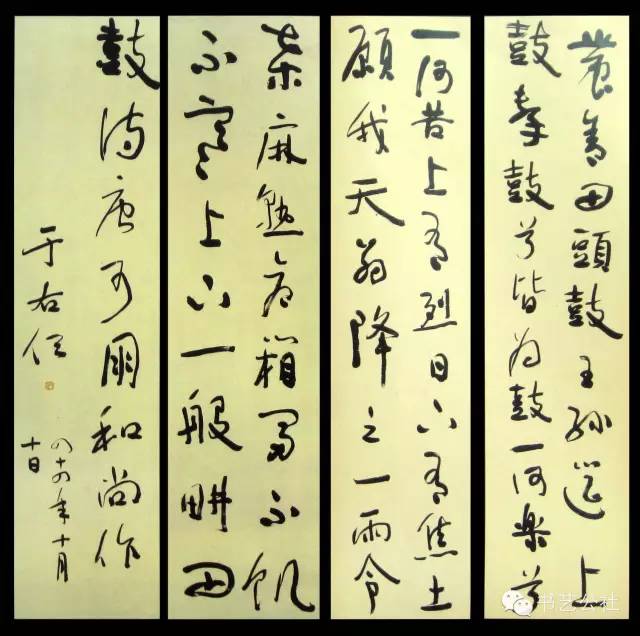 農舍田頭鼓王孫筵上
鼓擊鼓兮皆為鼓一何樂兮
一何苦上有烈日下有焦土
願我天翁降之一雨令
桑麻熟倉箱富不飢
不寒上下一般畊田
鼓詩唐可朋和尚作
于右任
四十四年十月
十日
书艺公社